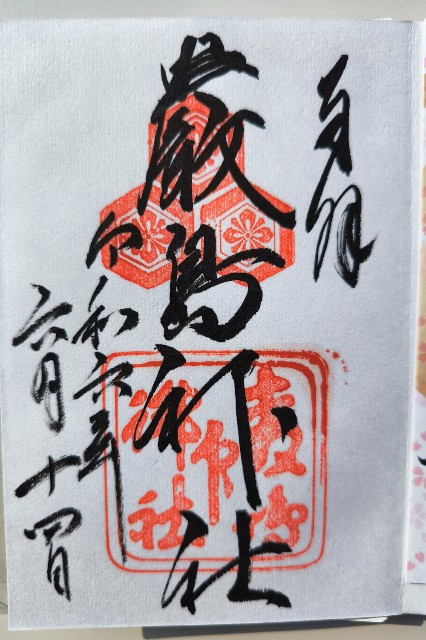 奉拝
厳島神社
令和六年
六月十四日
嚴島
神社